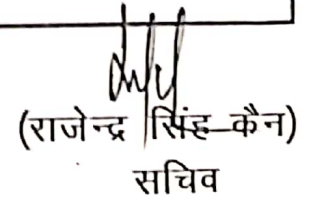 (राजेन्द्र सिंह-कैन)
सचिव